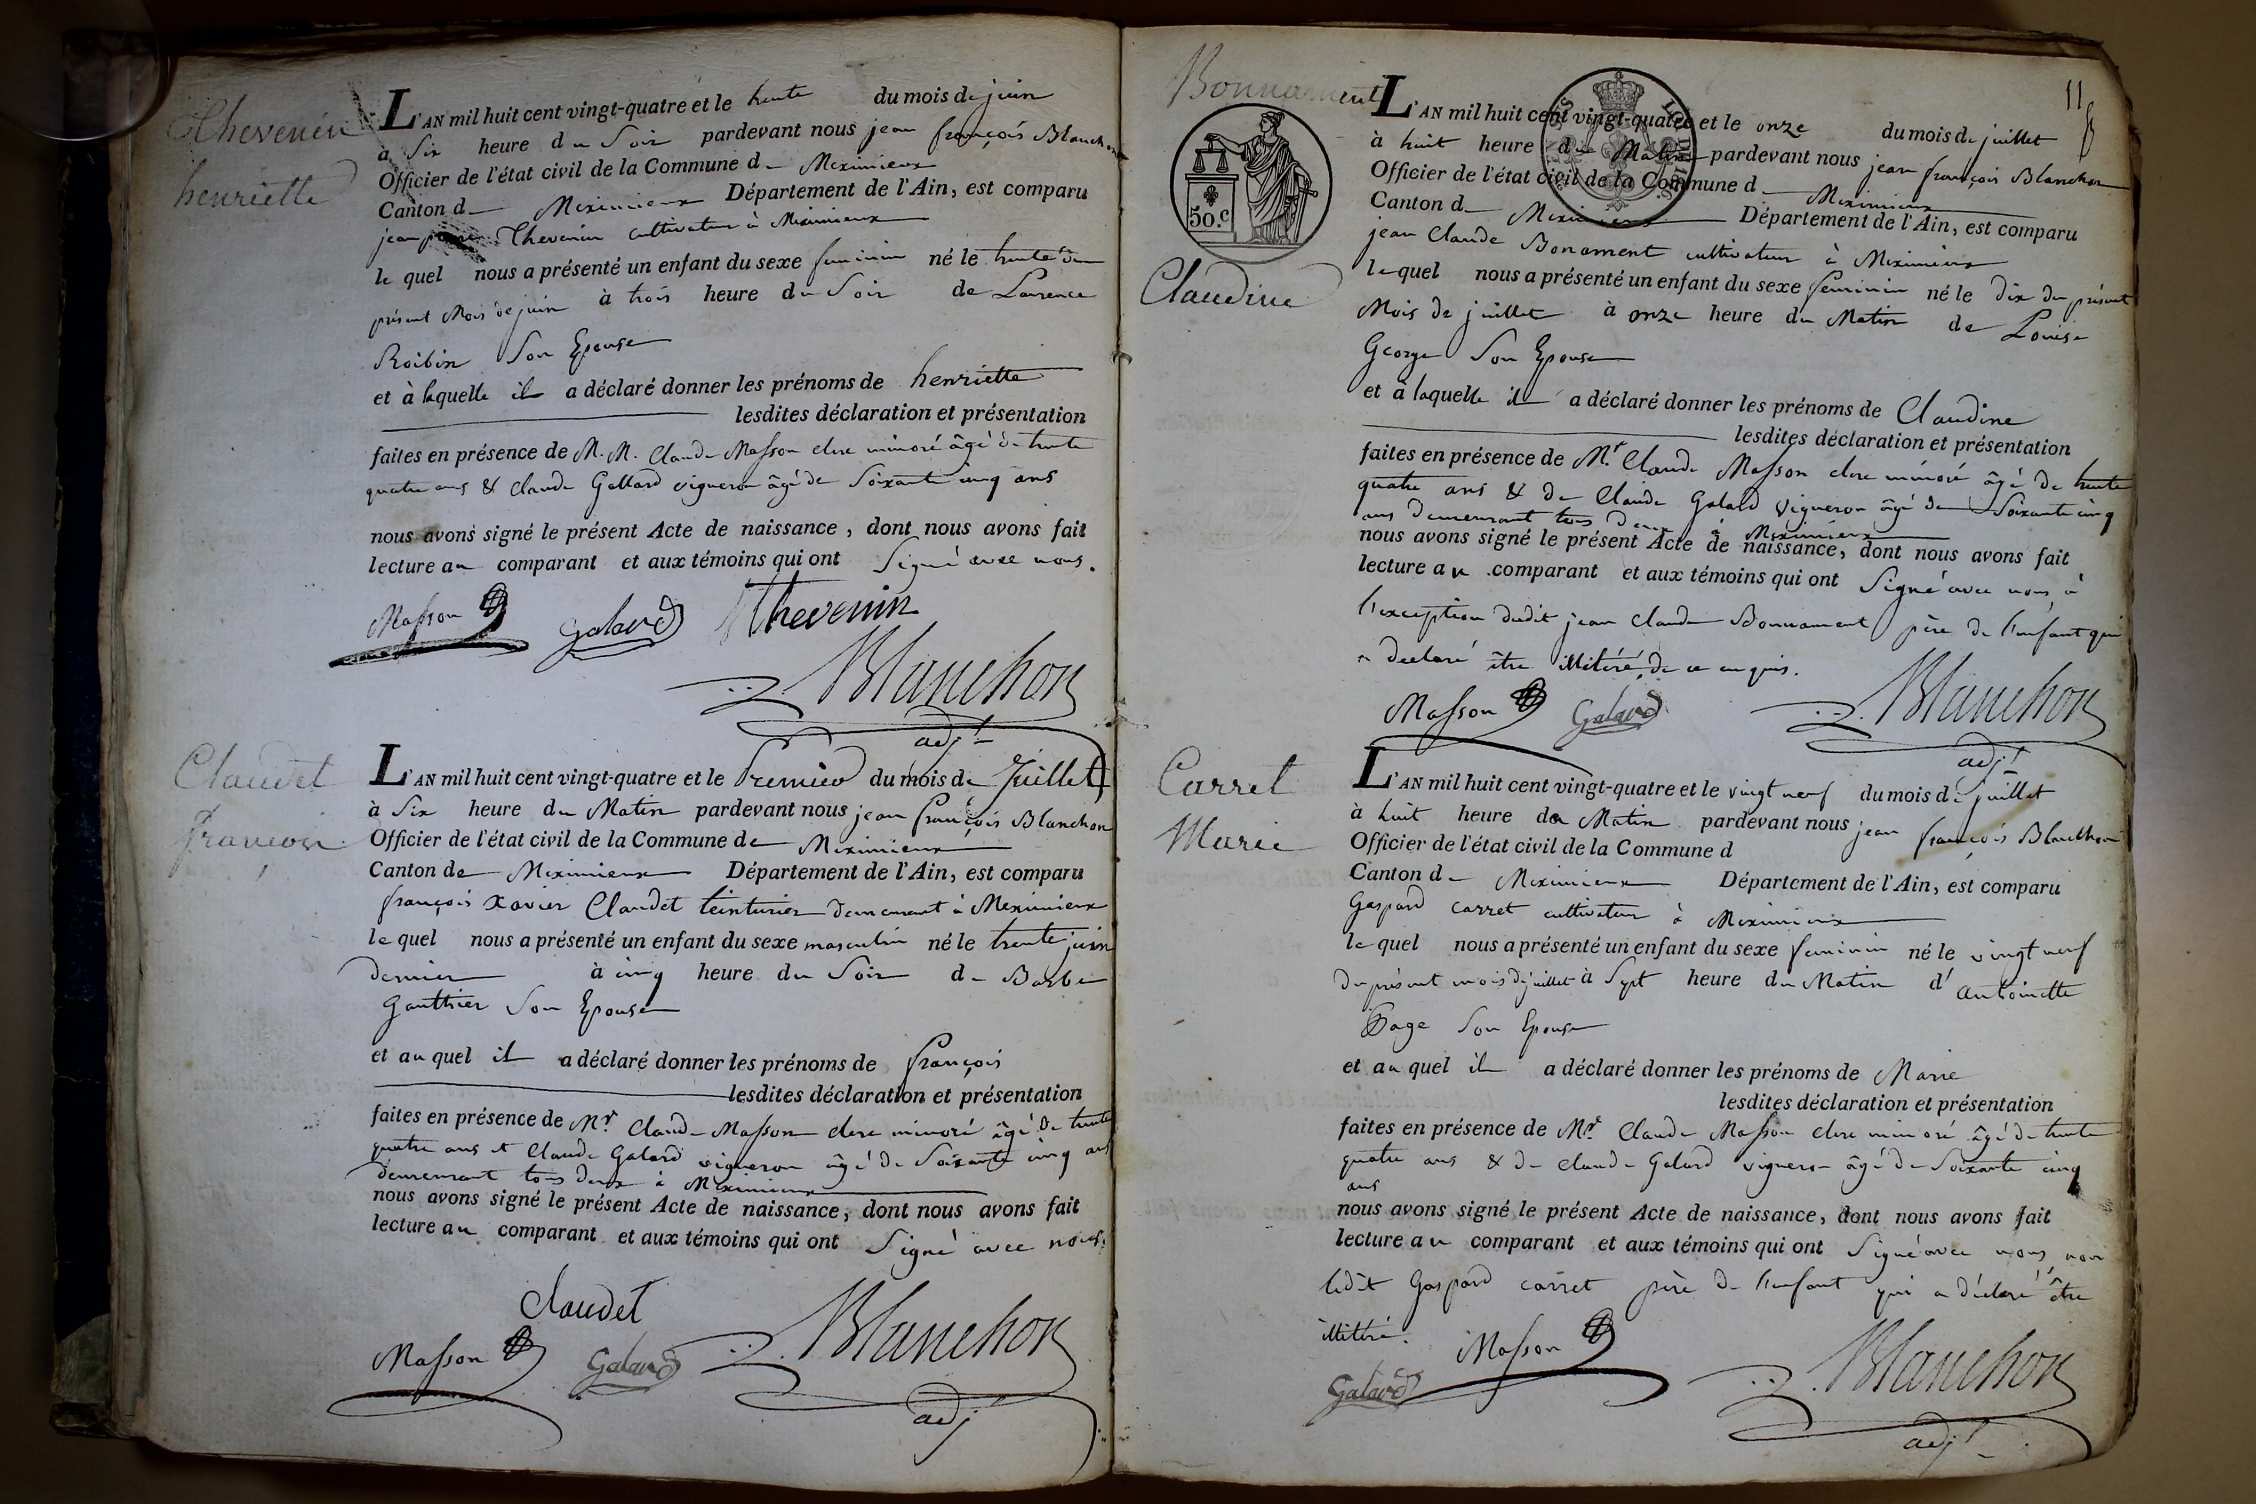 Thevenin
henriette
L'AN mil huit cent vingt-quatre et le trente du mois de juin
à Six heure du Soir pardevant nous jean françois Blanchon
Officier de l'état civil de la Commune de Meximieux
Canton de Meximieux Département de l'Ain, est comparu
jean Thevenin cultivateur à Meximieux
le quel nous a présenté un enfant du sexe feminin né le trente du
présent Mois de juin à trois heure du Soir de Laurence
Roibin Son Epouse
et à laquelle il a déclaré donner les prénoms de henriette
lesdites déclaration et présentation
faites en présence de M. M. Claude Masson clerc minoré âgé de trente
quatre ans & Claude Gallard vigneron âgé de Soixante cinq ans
nous avons signé le présent Acte de naissance, dont nous avons fait
lecture au comparant et aux témoins qui ont Signé avec nous.
Masson Galard Thevenin
Blanchon
adjt
Claudet
françois
L'AN mil huit cent vingt-quatre et le Premier du mois de Juillet
à Six heure du Matin pardevant nous jean françois Blanchon
Officier de l'état civil de la Commune de Meximieux
Canton de Meximieux Département de l'Ain, est comparu
françois Xavier Claudet teinturier demeurant à Meximieux
le quel nous a présenté un enfant du sexe masculin né le trente juin
dernier à cinq heure du Soir de Barbe
Gauthier Son Epouse
et au quel il a déclaré donner les prénoms de françois
lesdites déclaration et présentation
faites en présence de Mr. Claude Masson clerc minoré âgé de trente
quatre ans et Claude Galard vigneron âgé de Soixante cinq ans
demeurant tous deux à Meximieux
nous avons signé le présent Acte de naissance, dont nous avons fait
lecture au comparant et aux témoins qui ont Signé avec nous.
Claudet
Masson Galard Blanchon
adjt
11
Bonnament
50.c
Claudine
L'AN mil huit cent vingt-quatre et le onze du mois de juillet
à huit heure du Matin pardevant nous jean françois Blanchon
Officier de l'état civil de la Commune de Meximieux
Canton de Meximieux Département de l'Ain, est comparu
jean Claude Bonament cultivateur à Meximieux
le quel nous a présenté un enfant du sexe feminin né le dix du présent
Mois de juillet à onze heure du Matin de Louise
George Son Epouse
et à laquelle il a déclaré donner les prénoms de Claudine
lesdites déclaration et présentation
faites en présence de Mr. Claude Masson clerc minoré âgé de trente
quatre ans & de Claude Galard vigneron âgé de Soixante cinq
ans demeurant tous deux à Meximieux
nous avons signé le présent Acte de naissance, dont nous avons fait
lecture au comparant et aux témoins qui ont Signé avec nous, à
l'exception dudit jean Claude Bonnament père de l'enfant qui
a declaré être illitéré, de ce enquis.
Masson Galard Blanchon
adjt
Carret
Marie
L'AN mil huit cent vingt-quatre et le vingt neuf du mois de juillet
à huit heure du Matin pardevant nous jean françois Blanchon
Officier de l'état civil de la Commune d
Canton de Meximieux Département de l'Ain, est comparu
Gaspard carret cultivateur à Meximieux
le quel nous a présenté un enfant du sexe feminin né le vingt neuf
du présent mois de juillet à Sept heure du Matin d'antoinette
Page Son Epouse
et au quel il a déclaré donner les prénoms de Marie
lesdites déclaration et présentation
faites en présence de Mr. Claude Masson clerc minoré âgé de trente
quatre ans & de Claude Galard vigneron âgé de Soixante cinq
ans
nous avons signé le présent Acte de naissance, dont nous avons fait
lecture au comparant et aux témoins qui ont Signé avec nous, non
ledit Gaspard carret père de l'enfant qui a déclaré être
illitéré.
Masson
Galard Blanchon
adjt